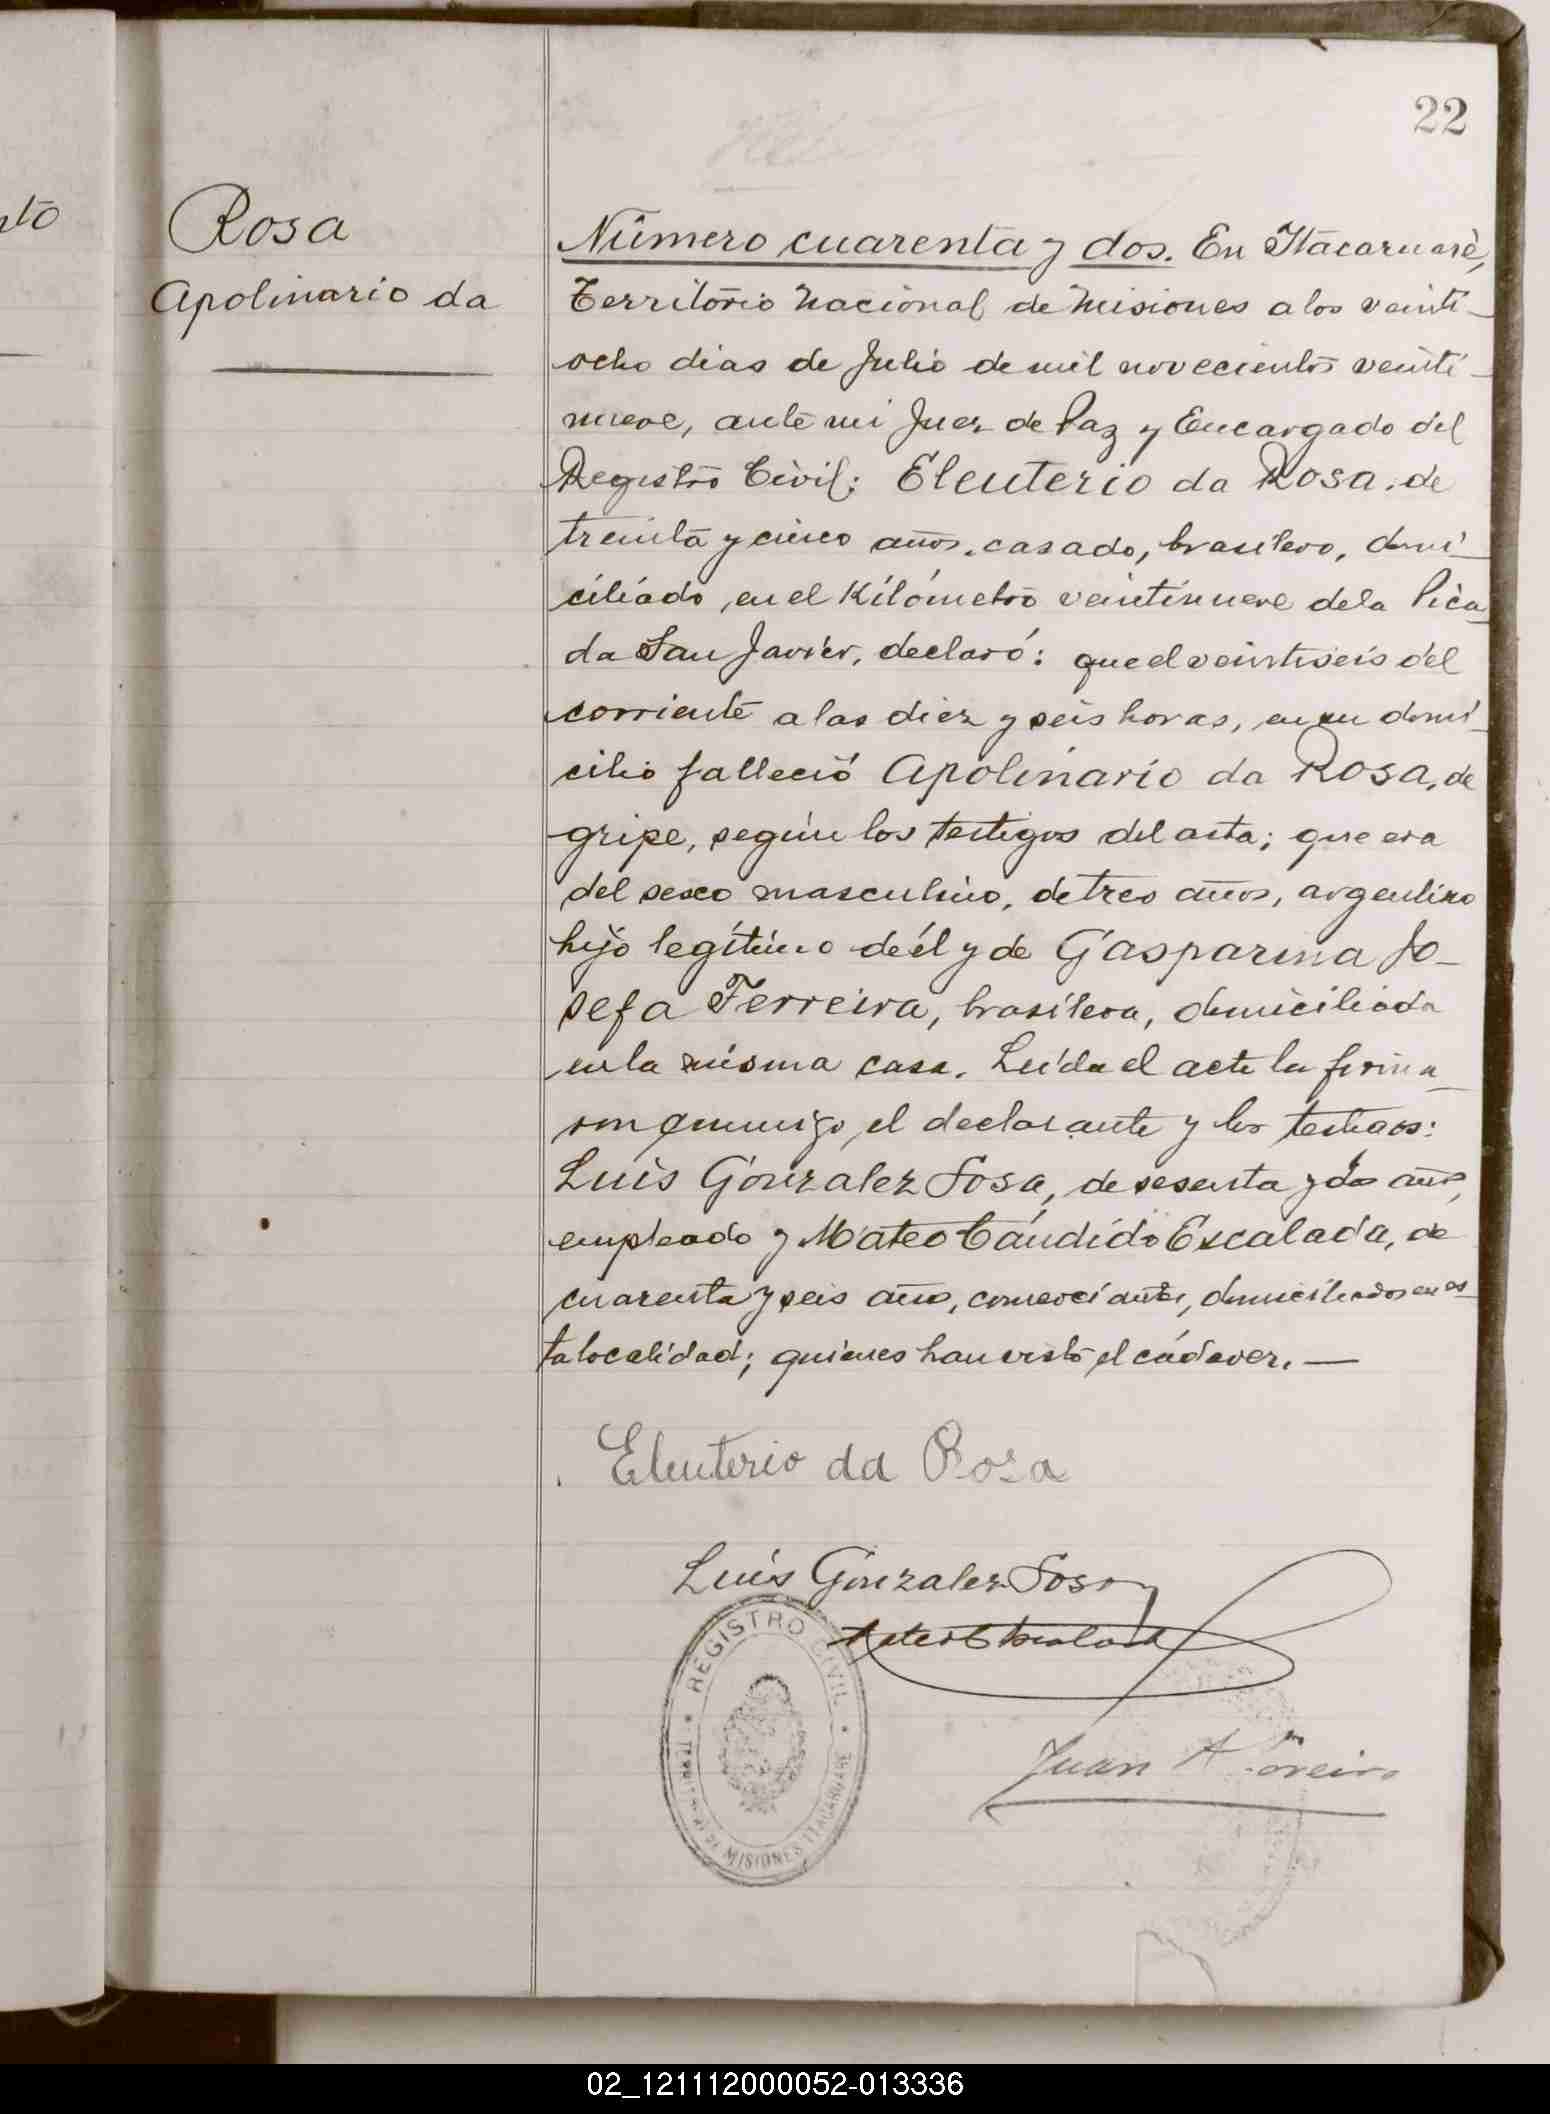 22
nto
Rosa
Apolinario da
Número cuarenta y dos. En Itacaruaré,
Territorio Nacional de Misiones a los veinti-
ocho dias de Julio de mil novecientos veinti-
nueve, ante mi Juez de Paz y Encargado del
Registro Civil: Eleuterio da Rosa, de
treinta y cinco años, casado, brasilero, domi-
ciliado, en el Kilómetro veintinueve de la Pica-
da San Javier, declaró: que el veintiseis del
corriente a las diez y seis horas, en su domi-
cilio falleció Apolinario da Rosa, de
gripe, según los testigos del acta; que era
del sexo masculino, de tres años, argentino
hijo legítimo de él y de Gasparina Jo-
sefa Ferreira, brasilera, domiciliada
en la misma casa. Leida el acta la firma-
ron conmigo, el declarante y los testigos:
Luis Gonzalez Sosa, de sesenta y dos años,
empleado y Mateo Cándido Escalada, de
cuarenta y seis años, comerciante, domiciliados en es-
ta localidad; quienes han visto el cádaver. —
Eleuterio da Rosa
Luis Gonzalez Sosa
Mateo C Escalada
REGISTRO CIVIL
TERRITORIO DE MISIONES ITACARUARE
Juan A.
02_121112000052-013336